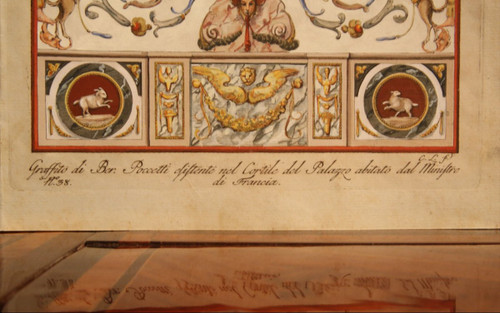 C. L. P.
Graffito di Ber. Poccetti esistente nel Cortile del Palazzo abitato dal Ministro
N.º 38.
di Francia.